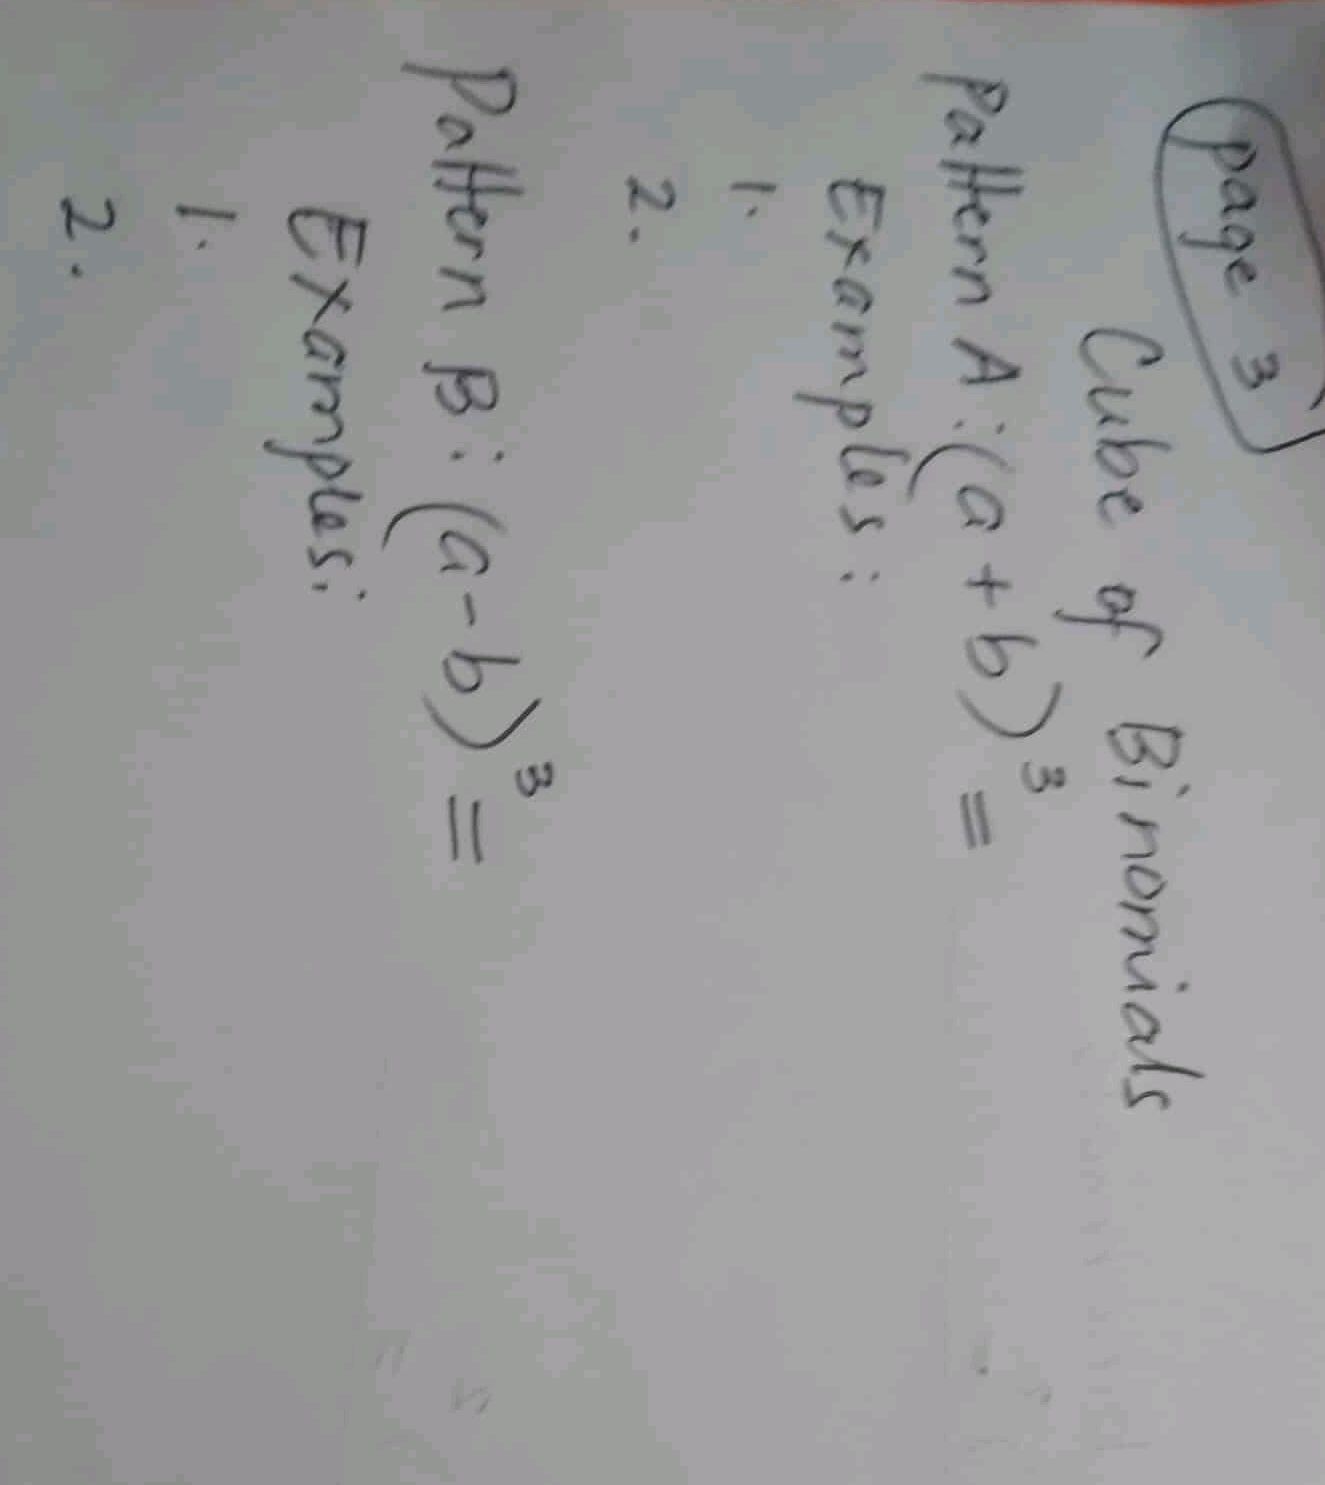 page 3
Cube of Binomials
Pattern A: (a + b)³ =
Examples:
1.
2.
Pattern B: (a - b)³ =
Examples:
1.
2.